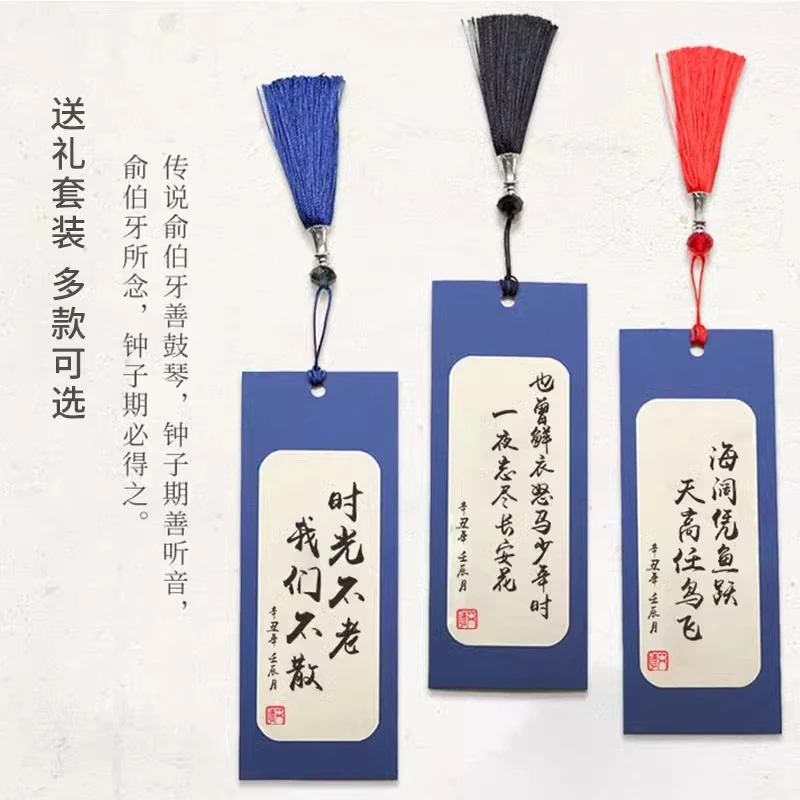 送礼套装 多款可选
传说俞伯牙善鼓琴，钟子期善听音，
俞伯牙所念，钟子期必得之。
时光不老
我们不散
辛丑年 壬辰月
也曾鲜衣怒马少年时
一夜忘尽长安花
辛丑年 壬辰月
海阔凭鱼跃
天高任鸟飞
辛丑年 壬辰月